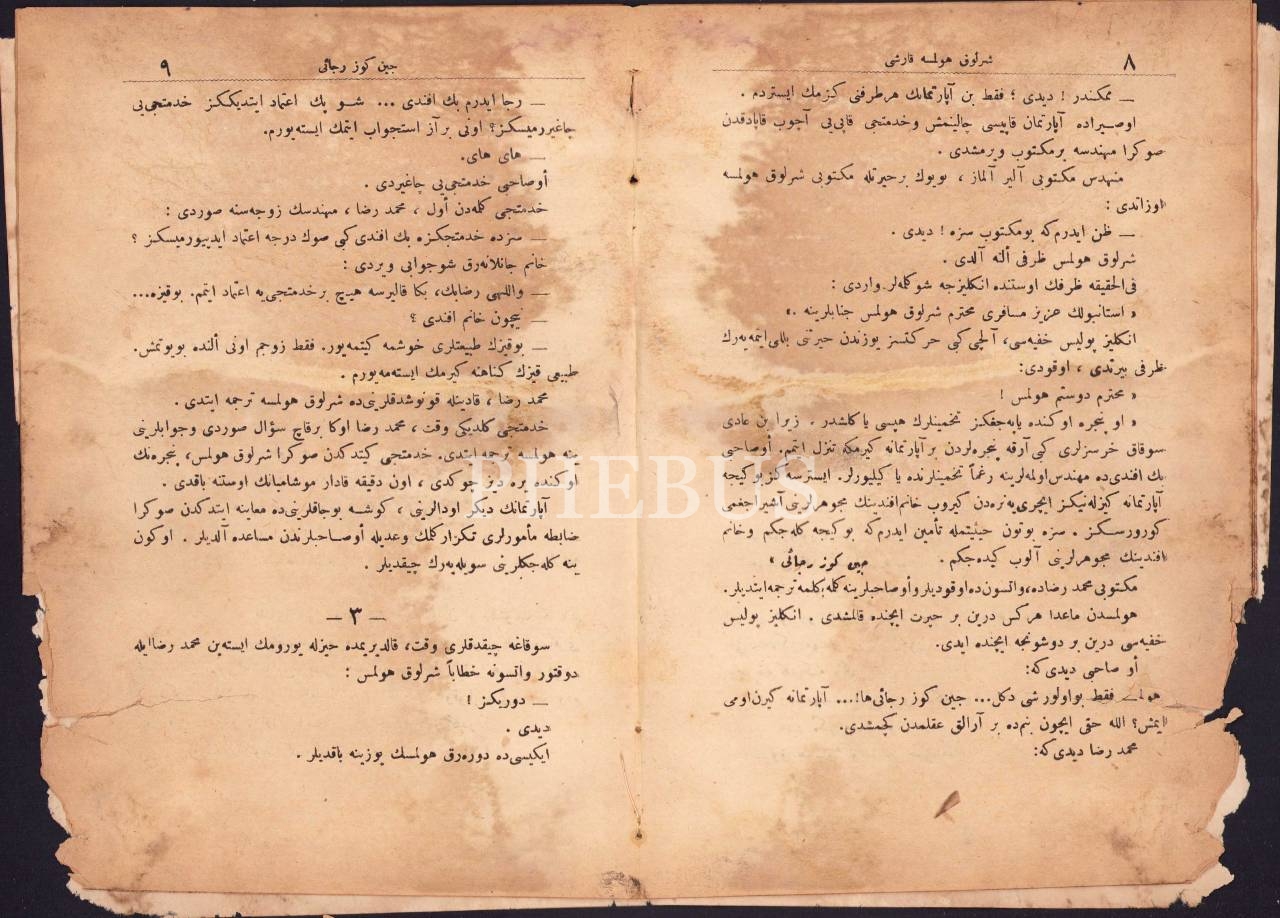 ٨
شرلوق هولمسه قارشی
ـــ ممكندر ! دیدی ؛ فقط بن آپارتمانك هر طرفنی كزمك ایستردم .
اوصیراده آپارتمان قاپیسی چالینمش وخدمتجی قاپی‌یی آچوب قاپادقدن
صوكرا مهندسه بر مكتوب ویرمشدی .
مهندس مكتوبی آلیر آلماز ، بویوك بر حیرتله مكتوبی شرلوق هولمسه
اوزاتدی :
ـــ ظن ایدرم‌كه بو مكتوب سزه ! دیدی .
شرلوق هولمس ظرفی ألنه آلدی .
فی‌الحقیقه ظرفك اوستنده انكلیزجه شو كله‌لر واردی :
« استانبولك عزیز مسافری محترم شرلوق هولمس جنابلرینه .»
انكلیز پولیس خفیه‌سی، آلچی كبی حركتسز یوزندن حیرتنی بللی ایتمه‌یه‌رك
ظرفی ییرتدی ، اوقودی:
« محترم دوستم هولمس !
« او پنجره اوكنده یاپه‌جغكز تخمینلرك هپسی یا كلشدر . زیرا بن عادی
سوقاق خرسزلری كبی آرقه پنجره‌لردن بر آپارتمانه كیرمكه تنزل ایتمم. أوصاحبی
بك افندی‌ده مهندس اولمه‌لرینه رغماً تخمینلرنده یا كیلیورلر. ایسترسه‌كز بو كیجه
آپارتمانه كیزله‌نیكز ایچری‌یه نره‌دن كیروب خانم‌افندینك مجوهرلرینی آشیراجغمی
كورورسكز . سزه بوتون حیثیتمله تأمین ایدرم‌كه بو كیجه كله‌جكم وخانم
افندینك مجوهرلرینی آلوب كیده‌جكم . جین كوز رجائی »
مكتوبی محمد رضاده، واتسون‌ده اوقودیلر و أوصاحبلرینه كله‌كله‌مه ترجمه ایتدیلر.
هولمسدن ماعدا هركس درین بر حیرت ایچنده قالمشدی . انكلیز پولیس
خفیه‌سی درین بر دوشونجه ایچنده ایدی.
أو صاحبی دیدی‌كه:
فقط بو اولور شی دكل... جین كوز رجائی‌ها!... آپارتمانه كیرن اومی
ایمش؟ الله حقی ایچون بنم‌ده بر آرالق عقلمدن كچمشدی.
محمد رضا دیدی‌كه:
جین كوز رجائی
٩
ـــ رجا ایدرم بك افندی ... شو پك اعتماد ایتدیككز خدمتجی‌یی
چاغیررمیسكز؟ اونی بر آز استجواب ایتمك ایسته‌یورم.
ـــ های های.
أوصاحبی خدمتجی‌یی چاغیردی .
خدمتجی كله‌دن أول ، محمد رضا ، مهندسك زوجه‌سنه صوردی :
ـــ سزده خدمتجكزه بك افندی كبی صوك درجه اعتماد ایدییورمیسكز ؟
خانم جانلانه‌رق شو جوابی ویردی :
ـــ واللهی رضا بك، بكا قالیرسه هیچ بر خدمتجی‌یه اعتماد ایتمم. بوقیزه...
ـــ نیچون خانم افندی ؟
ـــ بو قیزك طبیعتلری خوشمه كیتمه‌یور. فقط زوجم اونی ألنده بویوتمش.
طبیعی قیزك كناهنه كیرمك ایسته‌مه‌یورم .
محمد رضا ، قادینله قونوشدقلرینی‌ده شرلوق هولمسه ترجمه ایتدی .
خدمتجی كلدیكی وقت ، محمد رضا اوكا برقاچ سؤال صوردی وجوابلرینی
ینه هولمسه ترجمه ایتدی. خدمتجی كیتدكدن صوكرا شرلوق هولمس، پنجره‌نك
اوكنده یره دیز چوكدی ، اون دقیقه قادار موشامبانك اوستنه باقدی .
آپارتمانك دیكر اودالرینی ، كوشه بوجاقلرینی‌ده معاینه ایتدكدن صوكرا
ضابطه مأمورلری تكرار كلمك وعدیله أوصاحبلرندن مساعده آلدیلر . اوكون
ینه كله‌جكلرینی سویله‌یه‌رك چیقدیلر .
ـ ٣ ـ
سوقاغه چیقدقلری وقت، قالدیریمده حیزله یورومك ایسته‌ین محمد رضا ایله
دوقتور واتسونه خطاباً شرلوق هولمس :
ـــ دوریكز !
دیدی .
ایكیسی‌ده دوره‌رق هولمسك یوزینه باقدیلر .
PHEBUS